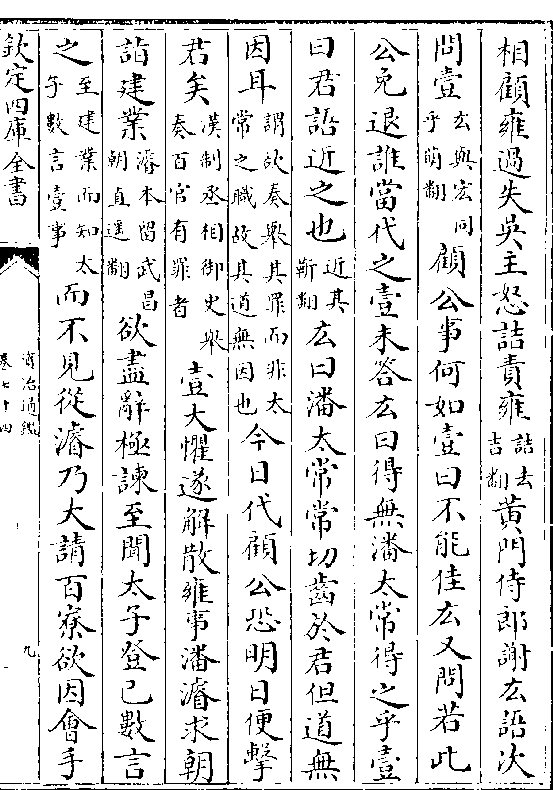 相顧雍過失吳主怒詰責雍詰去吉翻黃門侍郎謝厷語次
問壹厷與宏同乎萌翻顧公事何如壹曰不能佳厷又問若此
公免退誰當代之壹未答厷曰得無潘太常得之乎壹
曰君語近之也近其靳翻厷曰潘太常常切齒於君但道無
因耳謂欲奏舉其罪而非太常之職故其道無因也今日代顧公恐明日便擊
君矣漢制丞相御史舉奏百官有罪者壹大懼遂解散雍事潘濬求朝
詣建業濬本留武昌朝直遥翻欲盡辭極諫至聞太子登已數言
之至建業而知太子數言壹事而不見從濬乃大請百寮欲因會手
欽定四庫全書
資治通鑑
卷七十四
九